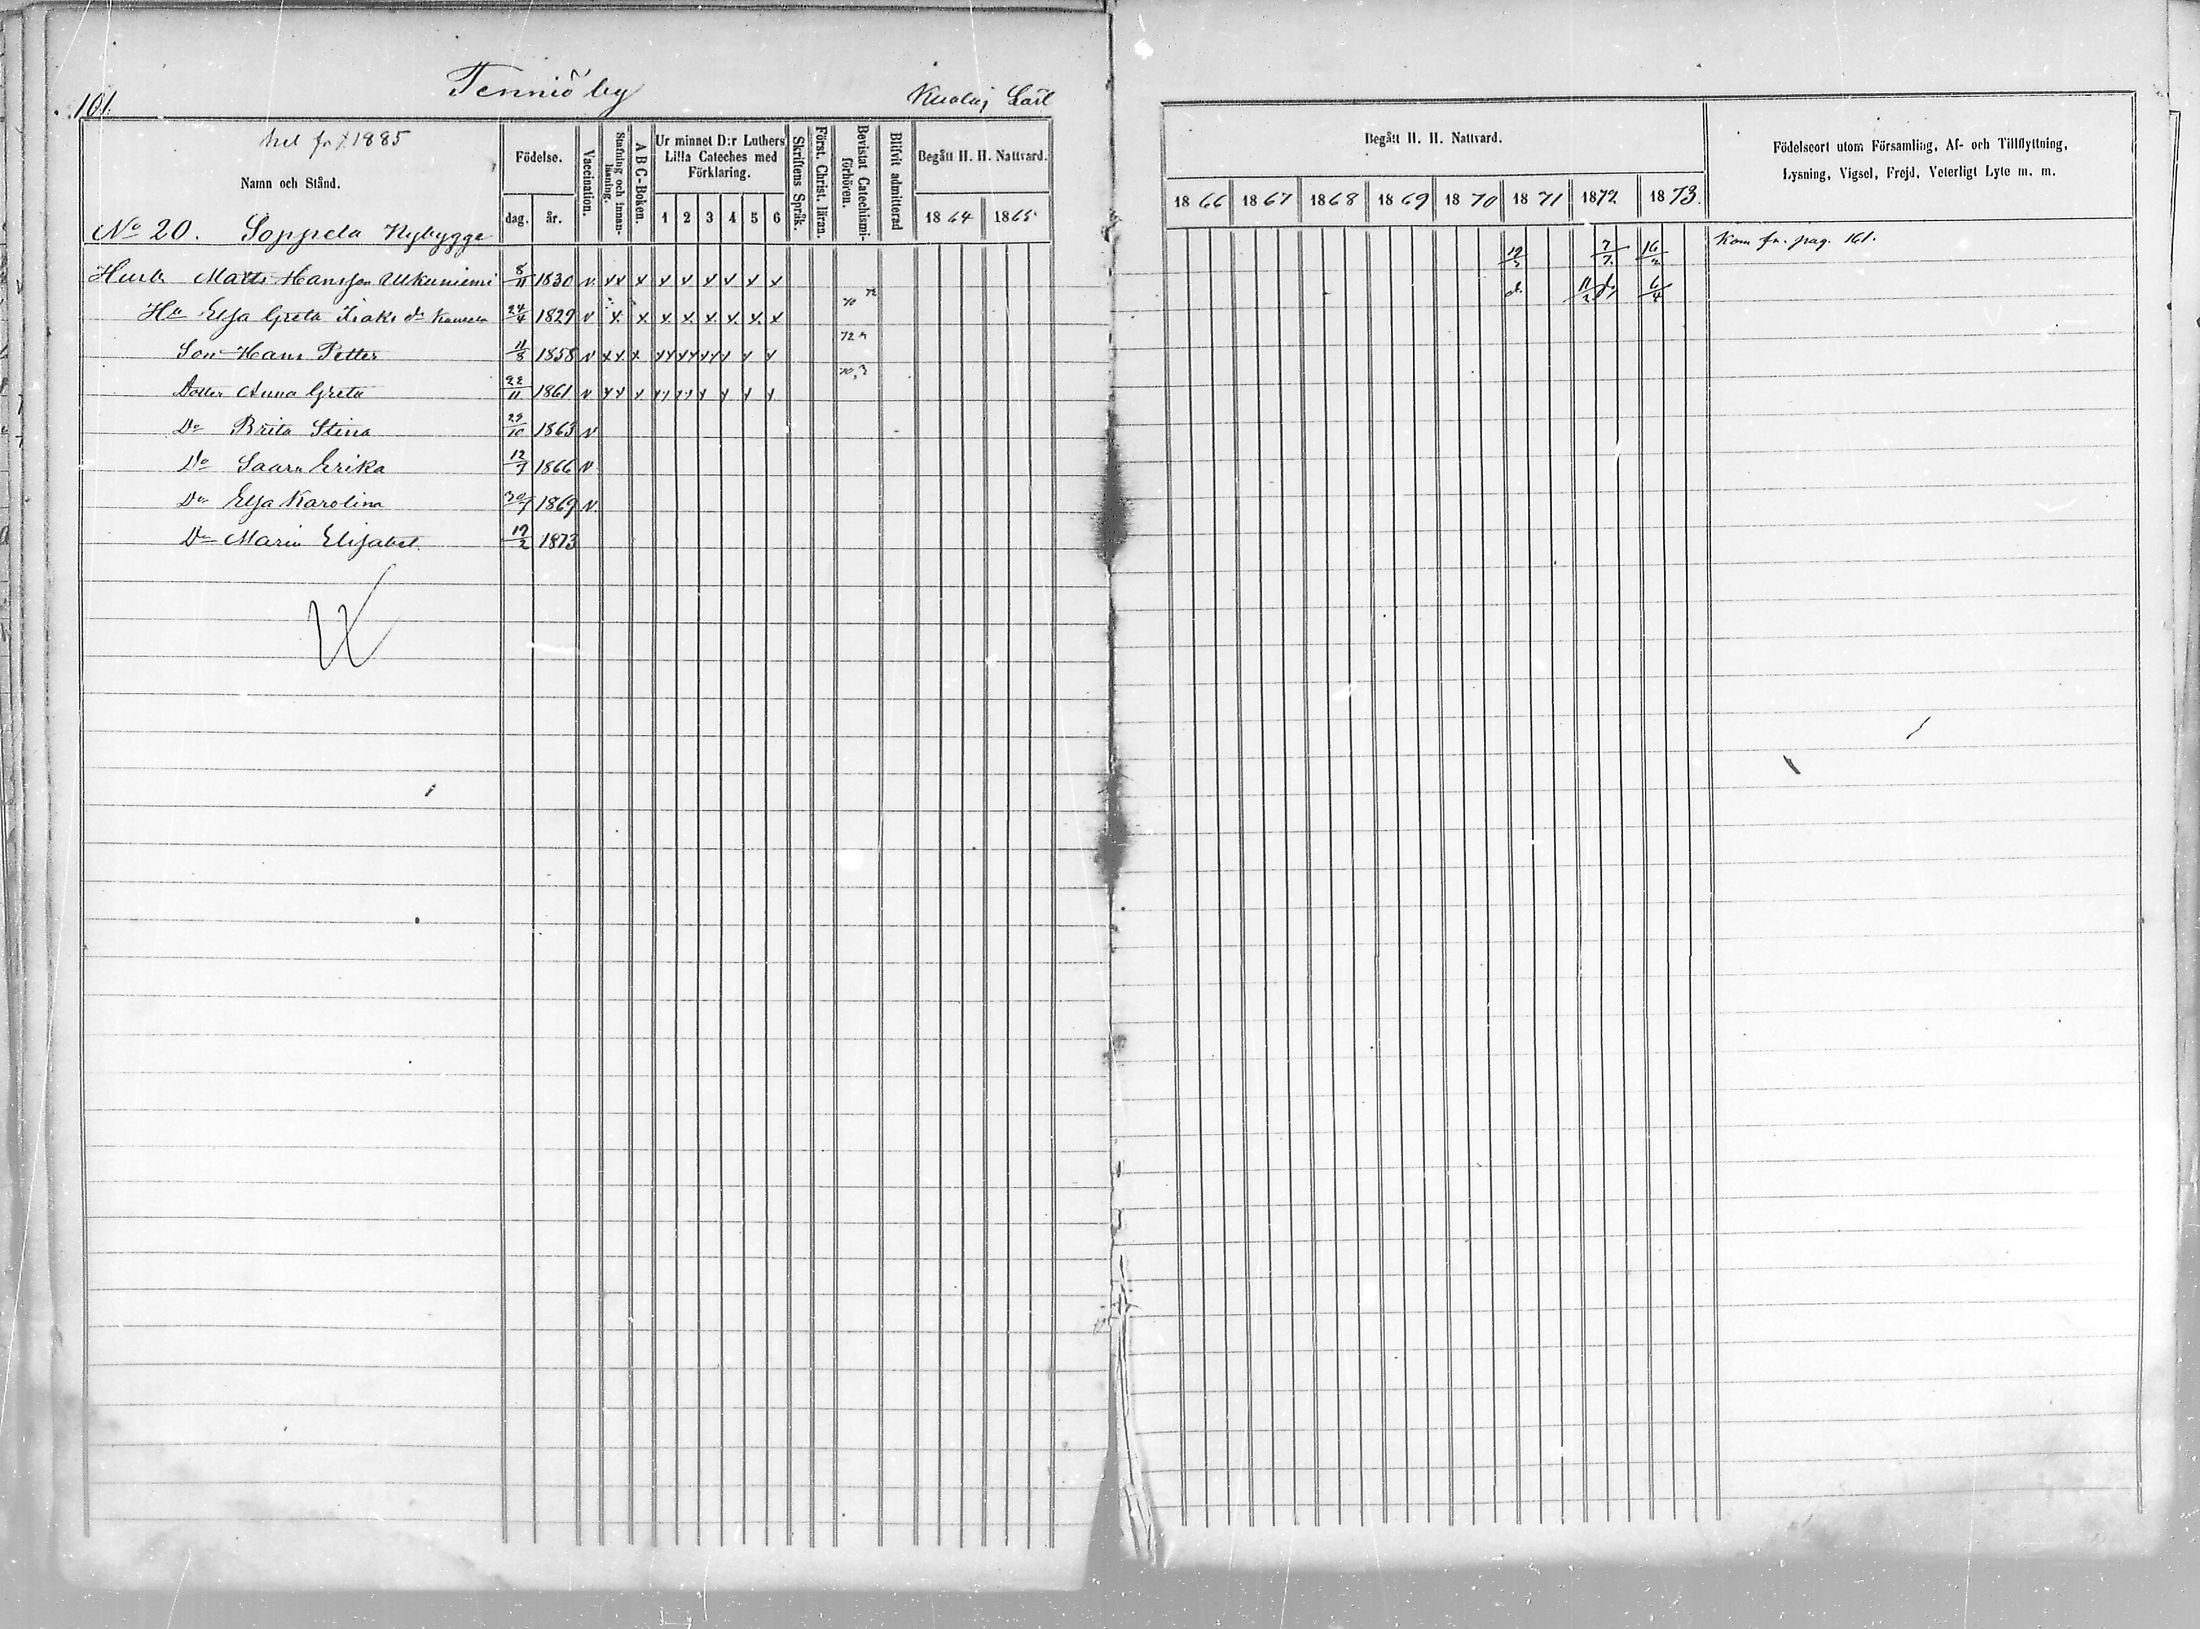 101.
Tenniö by
hel fr 1885
Namn och Stånd.
Födelse.
dag. år.
Vaccination.
Stafning och Innanläsning.
A B C-Boken.
Ur minnet D:r Luthers
Lilla Cateches med
Förklaring.
1 2 3 4 5 6
Skriftens Språk.
Först. Christ. läran.
Bevistat Catechismiförhören.
Blifvit admitterad
Begått H. H. Nattvard.
1864 1865
No 20. Soppela Nybygge
Husb Matts Hansson Ukuniemi 8/11 1830 v. x x x x x x x x x
72
Hu Elsa Greta Isaks dr 24/4 1829 v x. x x. x. x. x. x. x
70
Son Hans Petter 11/8 1858 v x x x xx xx xx x x x
72
Dotter Anna Greta 22/11 1861 v x x x xx xx x x x x
70,3
Dr Brita Stina 29/10 1863 v
Do Saara Erika 12/7 1866 v
Dr Elsa Karolina 1869 v.
Dr Maria Elisabet. 1873
Begått H. H. Nattvard.
1866 1867 1868 1869 1870 1871 1872 1873.
Födelseort utom Församling, Af- och Tillflyttning,
Lysning, Vigsel, Frejd, Veterligt Lyte m. m.
7/7. Kom fr. pag. 161.
do 11/2 do 6/4